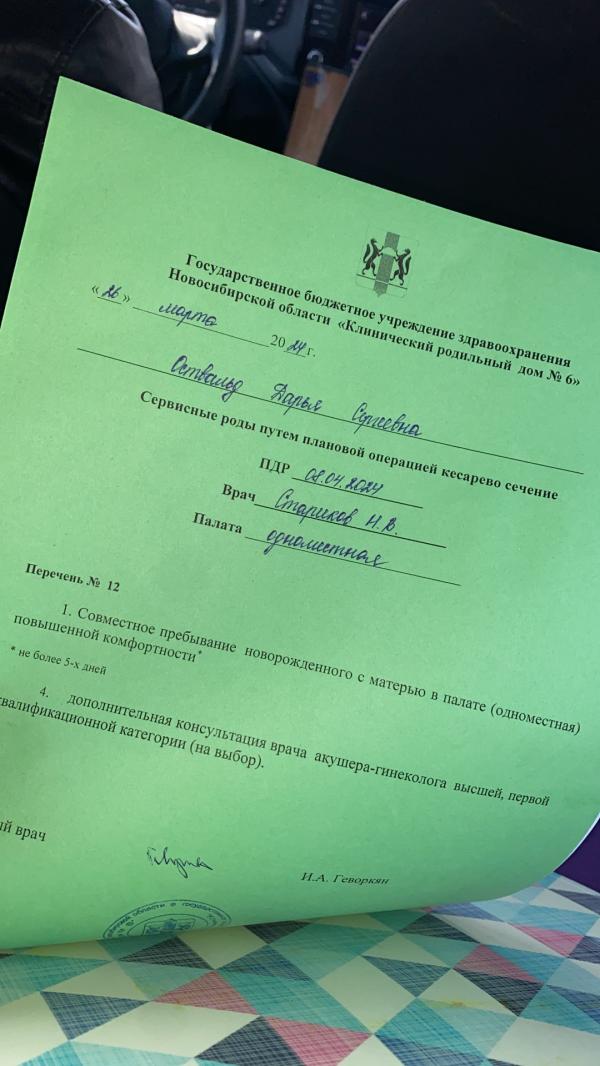 Государственное бюджетное учреждение здравоохранения
Новосибирской области «Клинический родильный дом № 6»
«26» марта 2024 г.
Оствальд Дарья Сергеевна
Сервисные роды путем плановой операцией кесарево сечение
ПДР 08.04.2024
Врач Стариков Н.В.
Палата одноместная
Перечень № 12
1. Совместное пребывание новорожденного с матерью в палате (одноместная)
повышенной комфортности*
* не более 5-х дней
4. дополнительная консультация врача акушера-гинеколога высшей, первой
валификационной категории (на выбор).
ый врач
И.А. Геворкян